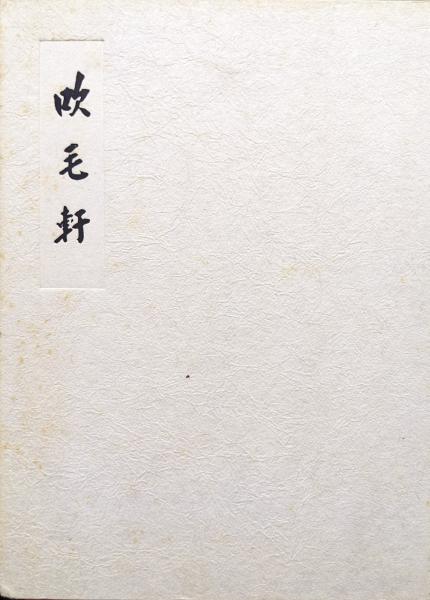 吹毛軒